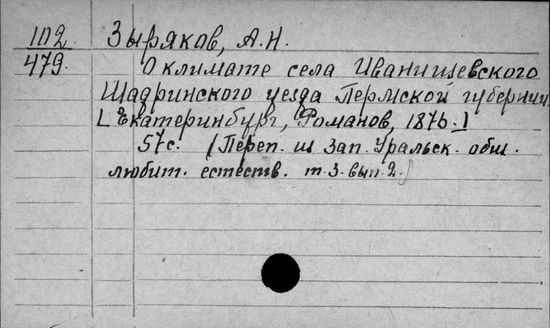 102. Зыряков, А.Н.
479. О климате села Иванищевского
Шадринского уезда Пермской губернии.
[Екатеринбург, Романов, 1876.]
57с. (Переп. из Зап. Уральск. общ.
любит. естеств. т.3. вып.2.)